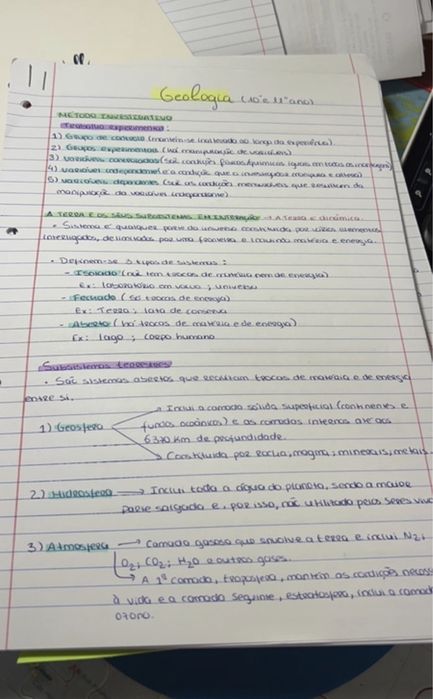 Geologia (10º e 11º ano)
MÉTODO INVESTIGATIVO
Trabalho experimental:
1) Grupo de controlo (mantém-se inalterado ao longo da experiência)
2) Grupos experimentais (há manipulação de variáveis)
3) Variáveis controladas (são condições físicas/químicas iguais em todas as montagens)
4) variável independente (é a condição que o investigador manipula e altera)
5) variáveis dependentes (são as condições mensuráveis que resultam da
manipulação da variável independente)
A TERRA E OS SEUS SUBSISTEMAS EM INTERAÇÃO → A Terra é dinâmica.
• Sistema é qualquer parte do universo constituída por vários elementos
interligados, delimitados por uma fronteira e incluindo matéria e energia.
• Definem-se 3 tipos de sistemas:
- Isolado (não tem trocas de matéria nem de energia)
Ex: laboratório em vácuo; universo
- Fechado (só trocas de energia)
Ex: Terra; lata de conserva
- Aberto (há trocas de matéria e de energia)
Ex: lago; corpo humano
Subsistemas terrestres
• São sistemas abertos que realizam trocas de matéria e de energia
entre si.
1) Geosfera → Inclui a camada sólida superficial (continentes e
fundos oceânicos) e as camadas internas até aos
6370 km de profundidade.
→ Constituída por rocha, magma, minerais, metais
2) Hidrosfera → Inclui toda a água do planeta, sendo a maior
parte salgada e, por isso, não utilizada pelos seres viv
3) Atmosfera → Camada gasosa que envolve a terra e inclui N2,
O2, CO2, H2O e outros gases.
→ A 1ª camada, troposfera, mantém as condições necess
à vida e a camada seguinte, estratosfera, inclui a camad
ozono.